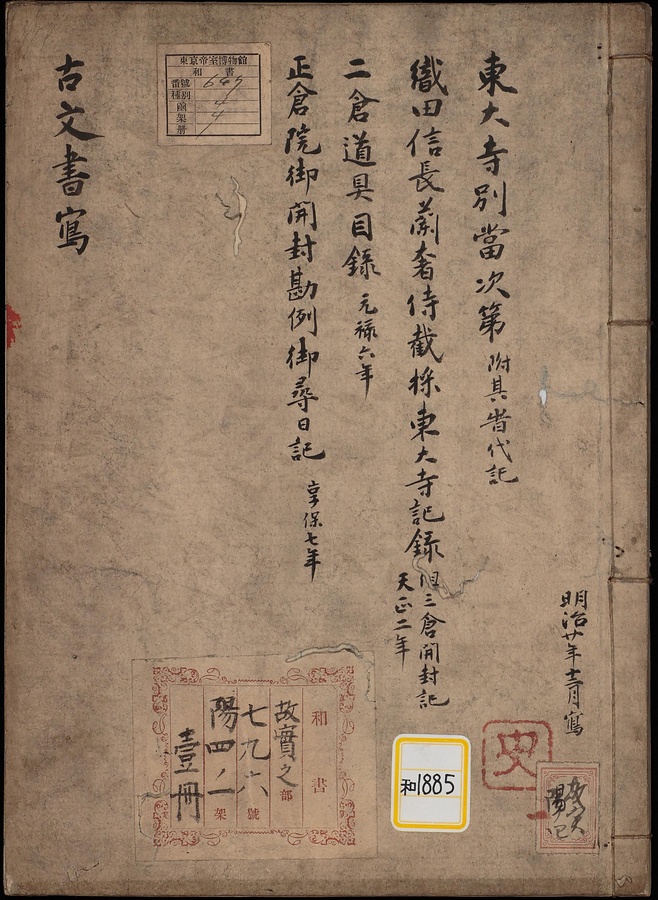 明治廿年十二月寫
東大寺別當次第 附具書代記
織田信長蘭奢待截採東大寺記録 但三倉開封記
天正二年
二倉道具目録 元禄六年
正倉院御開封勘例御尋日記 享保七年
古文書寫
東京帝室博物館
和書
番號 649
種別
函 4
架 4
册
和書
故實之部
七九六號
陽四ノ一架
壹冊
和1885
史